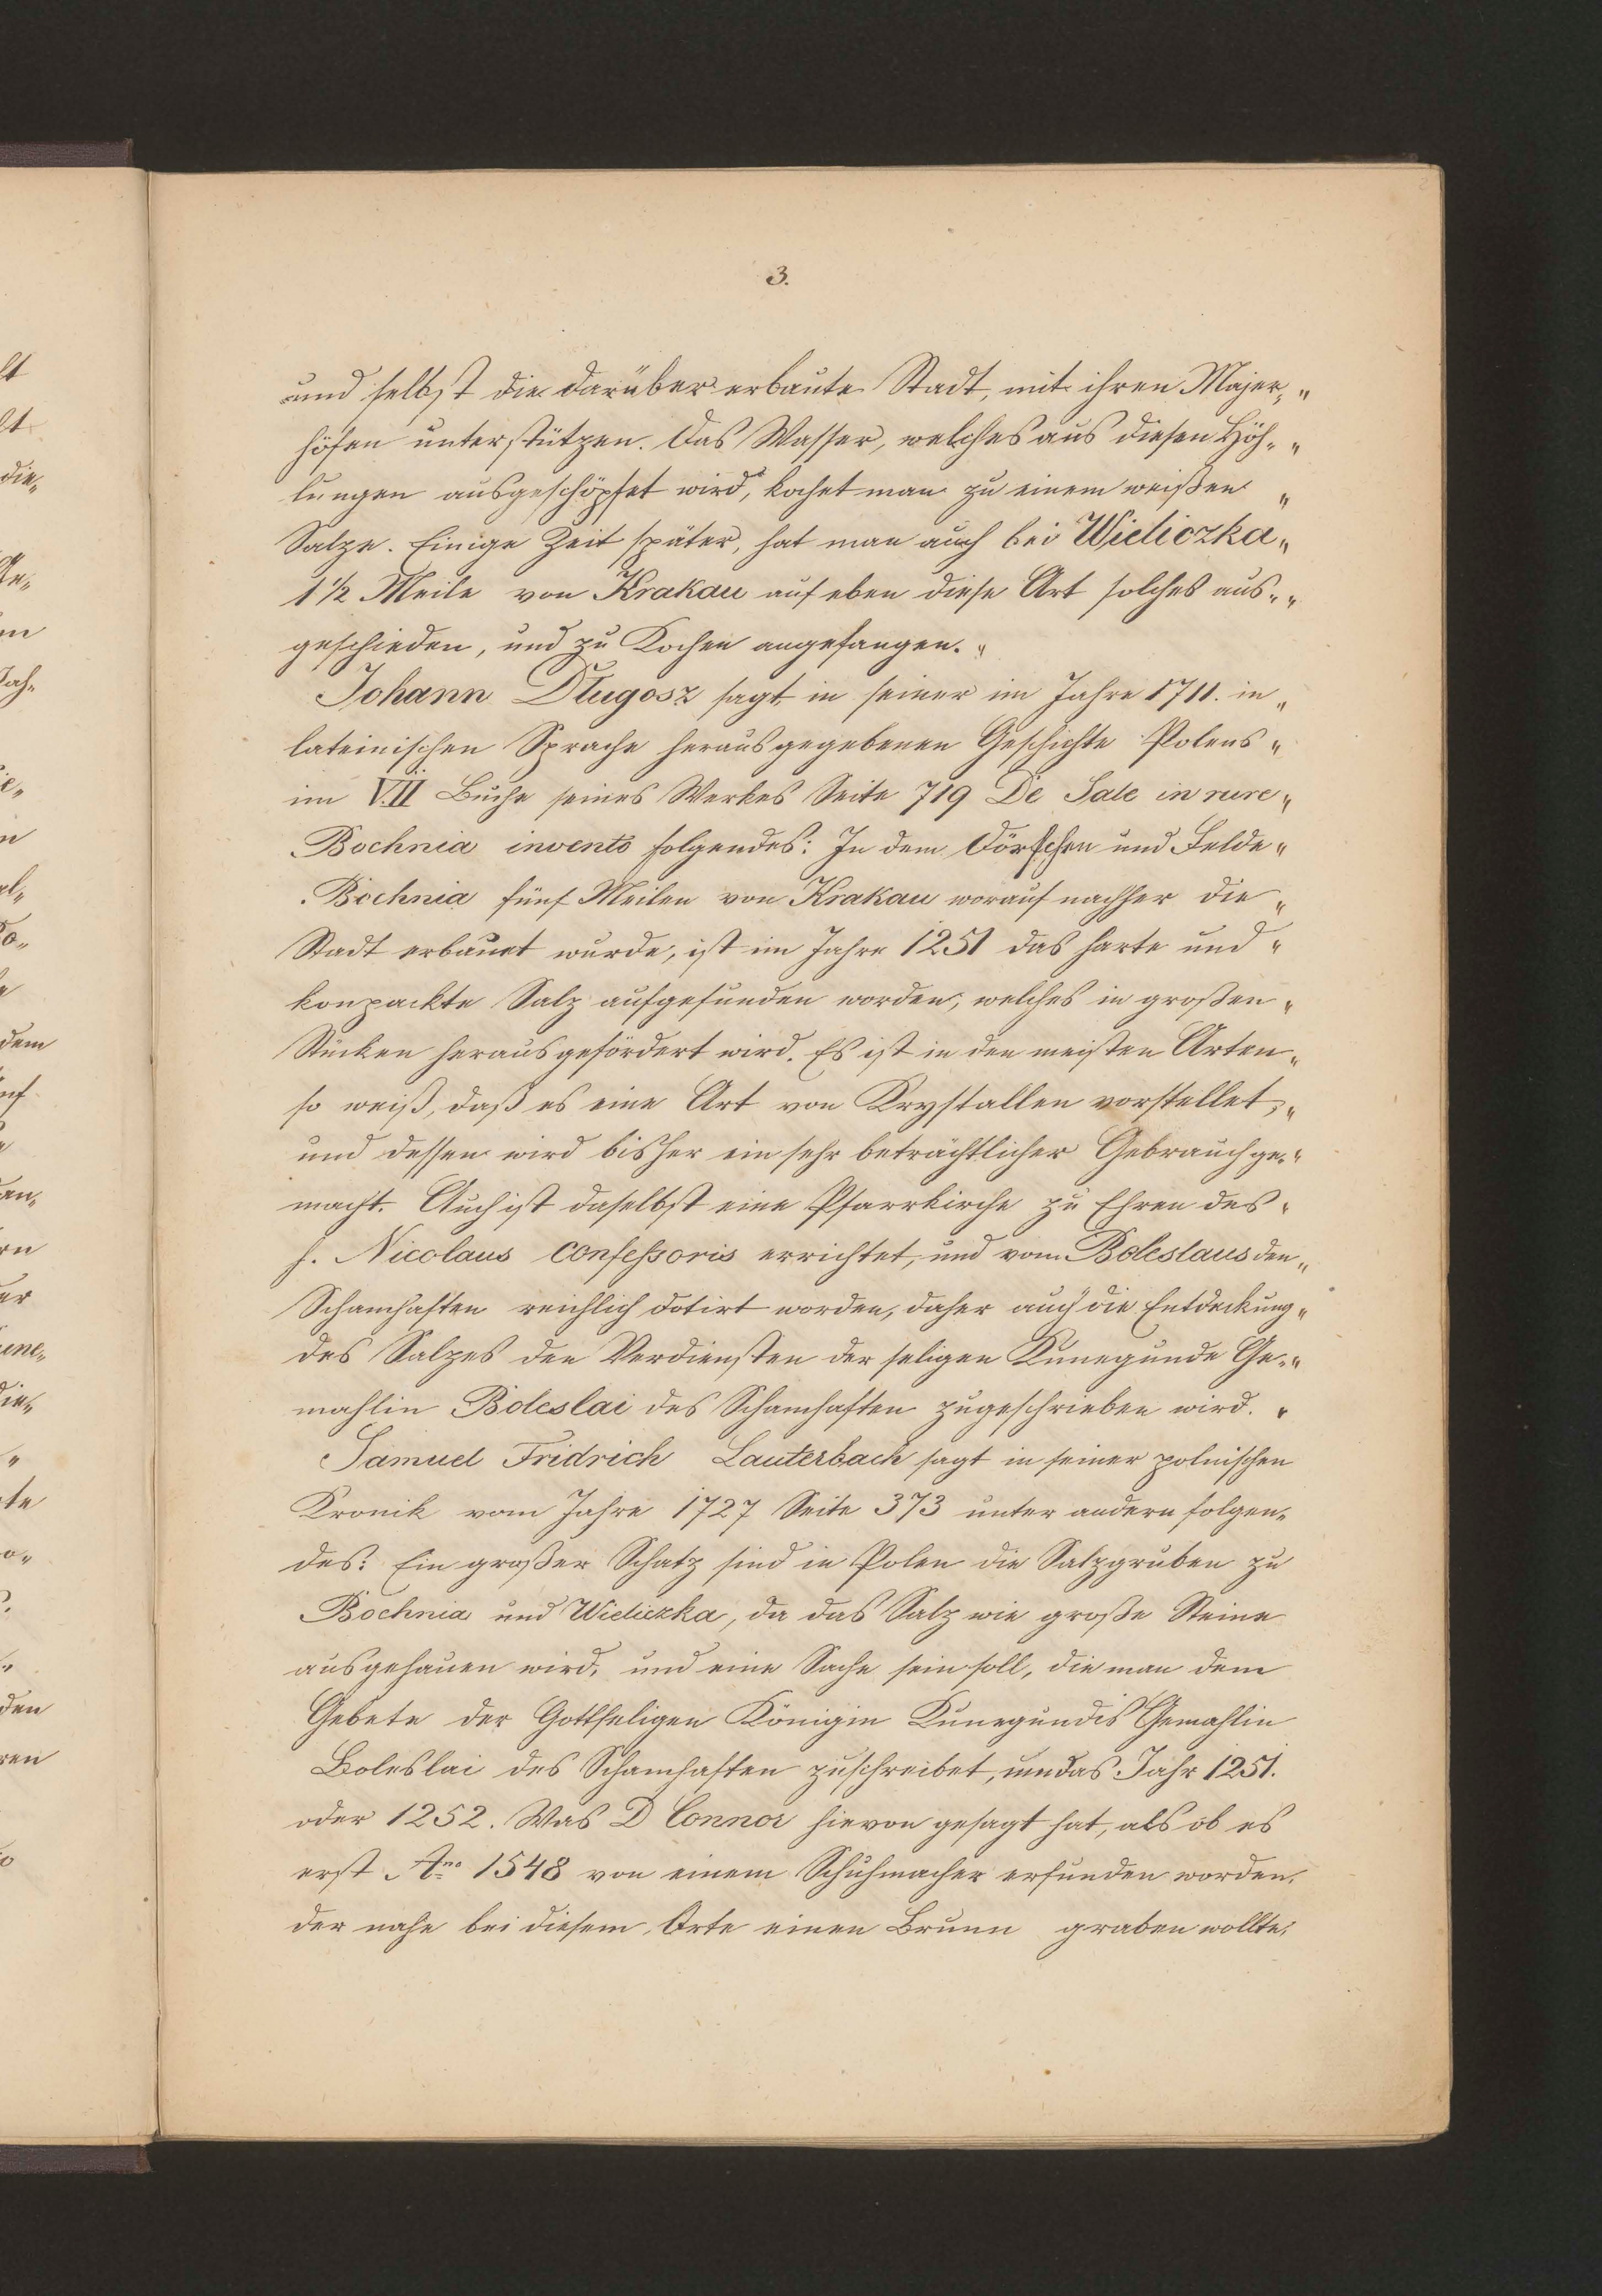 3.
und selbst die darüber erbaute Stadt, mit ihren Majer- "
höfen unterstützen. Das Wasser, welches aus diesen Höh- "
lungen ausgeschöpfet wird, kochet man zu einem weißen "
Salze. Einige Zeit später, hat man auch bei Wieliczka "
1 1/2 Meile von Krakau auf eben diese Art solches aus- "
geschieden, und zu Kochen angefangen. "
Johann Dlugosz sagt in seiner im Jahre 1711. in "
lateinischen Sprache herausgegebenen Geschichte Polens "
im VII Buche seines Werkes Seite 719 De Sale in rure "
Bochnia invento folgendes: In dem Dörfchen und Felde "
Bochnia fünf Meilen von Krakau worauf nachher die "
Stadt erbauet wurde, ist im Jahre 1251 das harte und "
konpackte Salz aufgefunden worden, welches in großen "
Stücken herausgefördert wird. Es ist in den meisten Arten "
so weiß, daß es eine Art von Krystallen vorstellet, "
und dessen wird bisher ein sehr beträchtlicher Gebrauch ge- "
macht. Auch ist daselbst eine Pfarrkirche zu Ehren des "
h. Nicolaus Confeßoris errichtet, und vom Boleslaus den "
Schamhaften reichlich dotirt worden, daher auch die Entdeckung "
des Salzes den Verdiensten der seligen Kunegunde Ge- "
mahlin Boleslai des Schamhaften zugeschrieben wird. "
Samuel Fridrich Lauterbach sagt in seiner polnischen
Kronik vom Jahre 1727 Seite 373 unter andern folgen-
des: Ein großer Schatz sind in Polen die Salzgruben zu
Bochnia und Wieliczka, da das Salz wie große Steine
ausgehauen wird, und eine Sache sein soll, die man dem
Gebete der Gottseligen Königin Kunegundis Gemahlin
Boleslai des Schamhaften zuschreibet, um das Jahr 1251.
oder 1252. Was D Connor hievon gesagt hat, als ob es
erst Ano 1548 von einem Schuhmacher erfunden worden,
der nahe bei diesem Orte einen Brunn graben wollte,